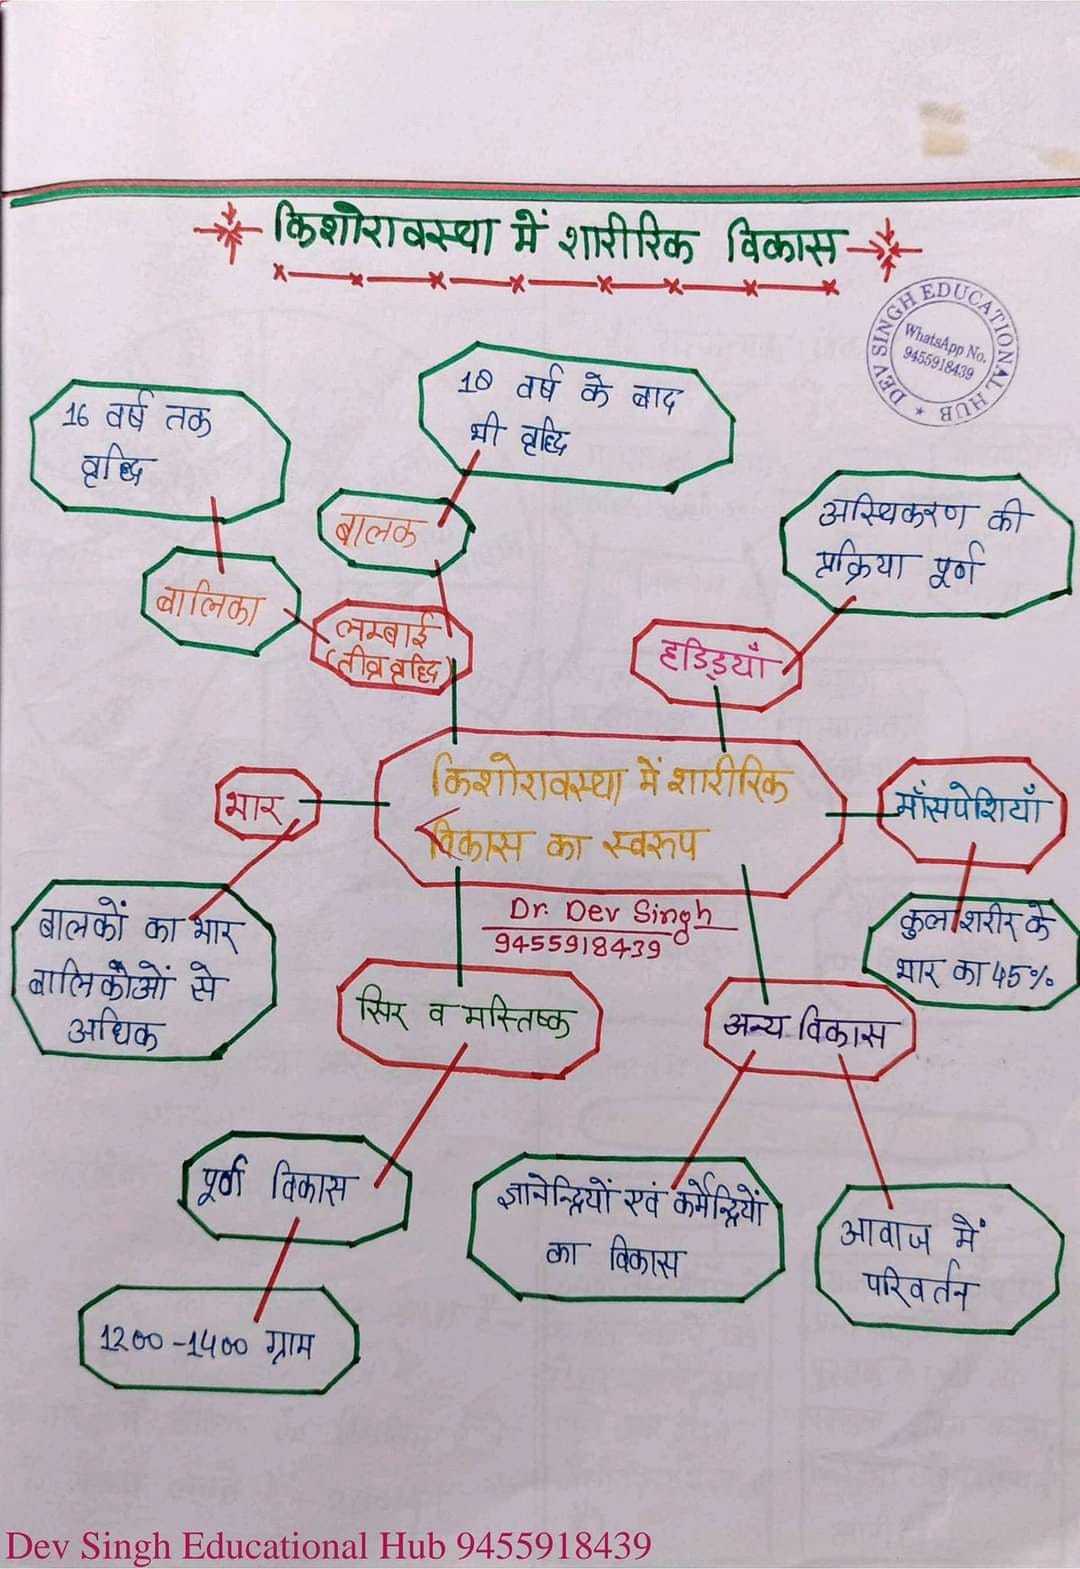 किशोरावस्था में शारीरिक विकास
DEV SINGH EDUCATIONAL HUB
WhatsApp No.
9455918439
16 वर्ष तक
वृद्धि
18 वर्ष के बाद
भी वृद्धि
बालक
बालिका
लम्बाई
(तीव्र वृद्धि)
अस्थिकरण की
प्रक्रिया पूर्ण
हड्डियाँ
किशोरावस्था में शारीरिक
विकास का स्वरूप
भार
माँसपेशियाँ
Dr. Dev Singh
9455918439
बालकों का भार
बालिकाओं से
अधिक
कुल शरीर के
भार का 45%
सिर व मस्तिष्क
अन्य विकास
पूर्ण विकास
ज्ञानेन्द्रियों एवं कर्मेन्द्रियों
का विकास
आवाज में
परिवर्तन
1200-1400 ग्राम
Dev Singh Educational Hub 9455918439